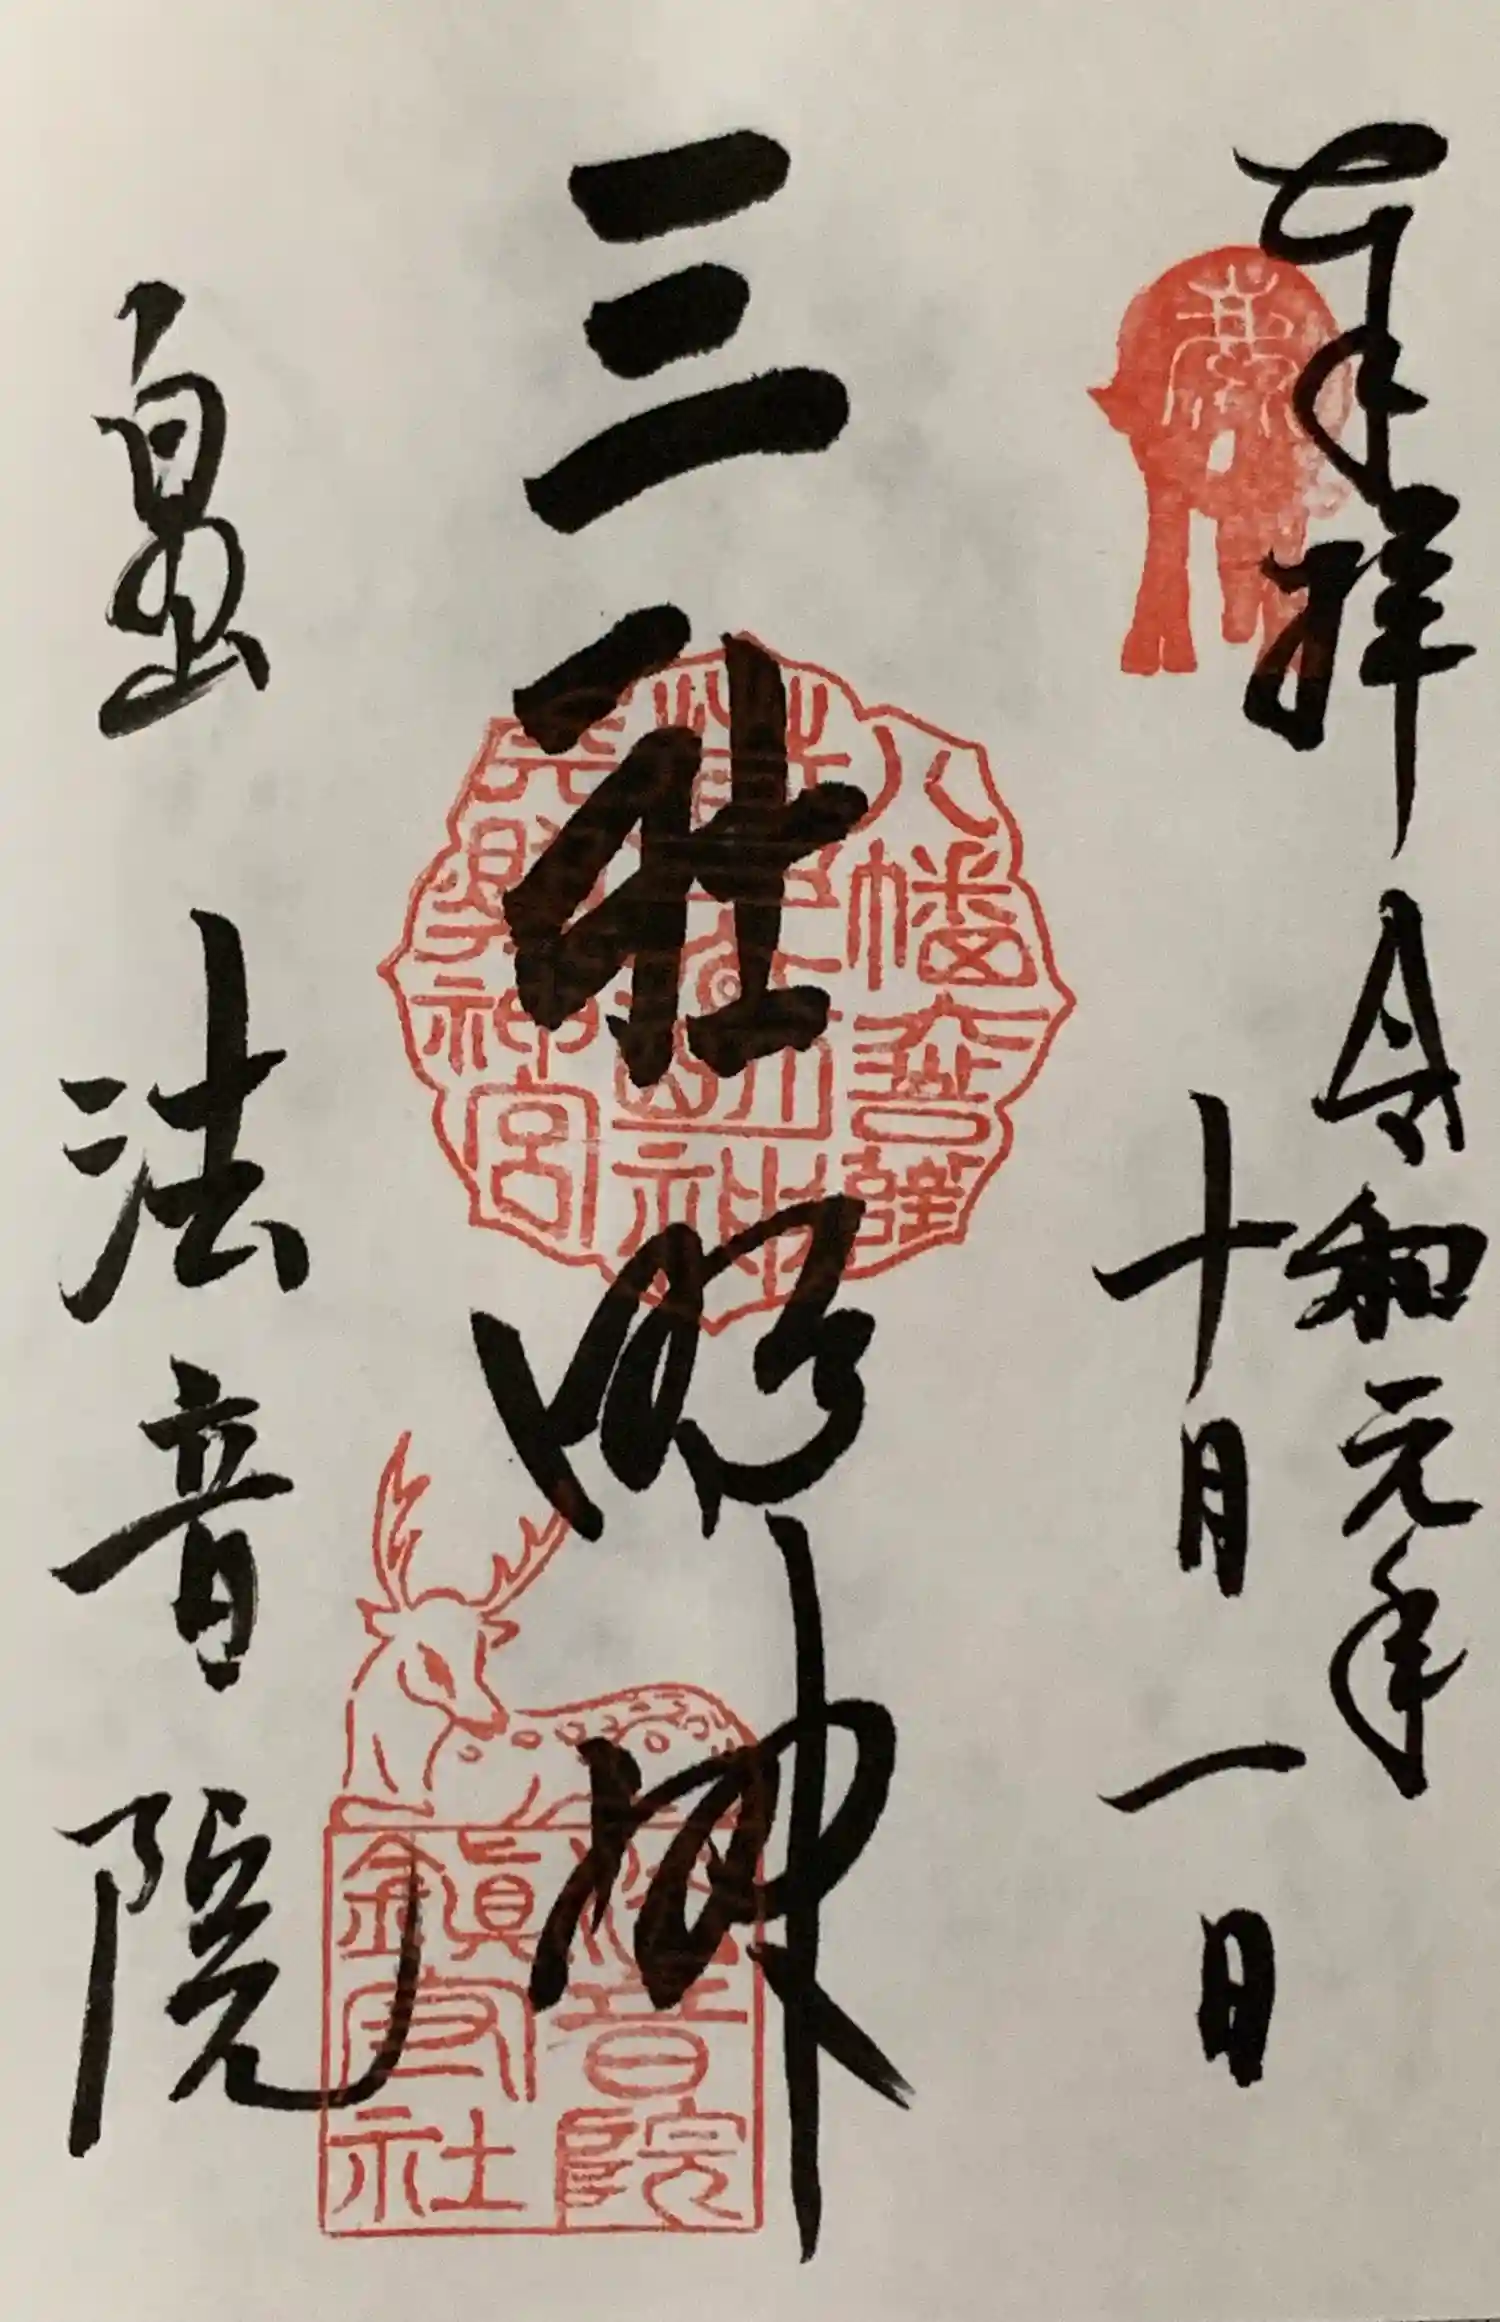 奉拝
令和元年
十月一日
三社明神
泉山
法音院
八幡大菩薩
春日大明神
天照神宮
法音院
鎮守社